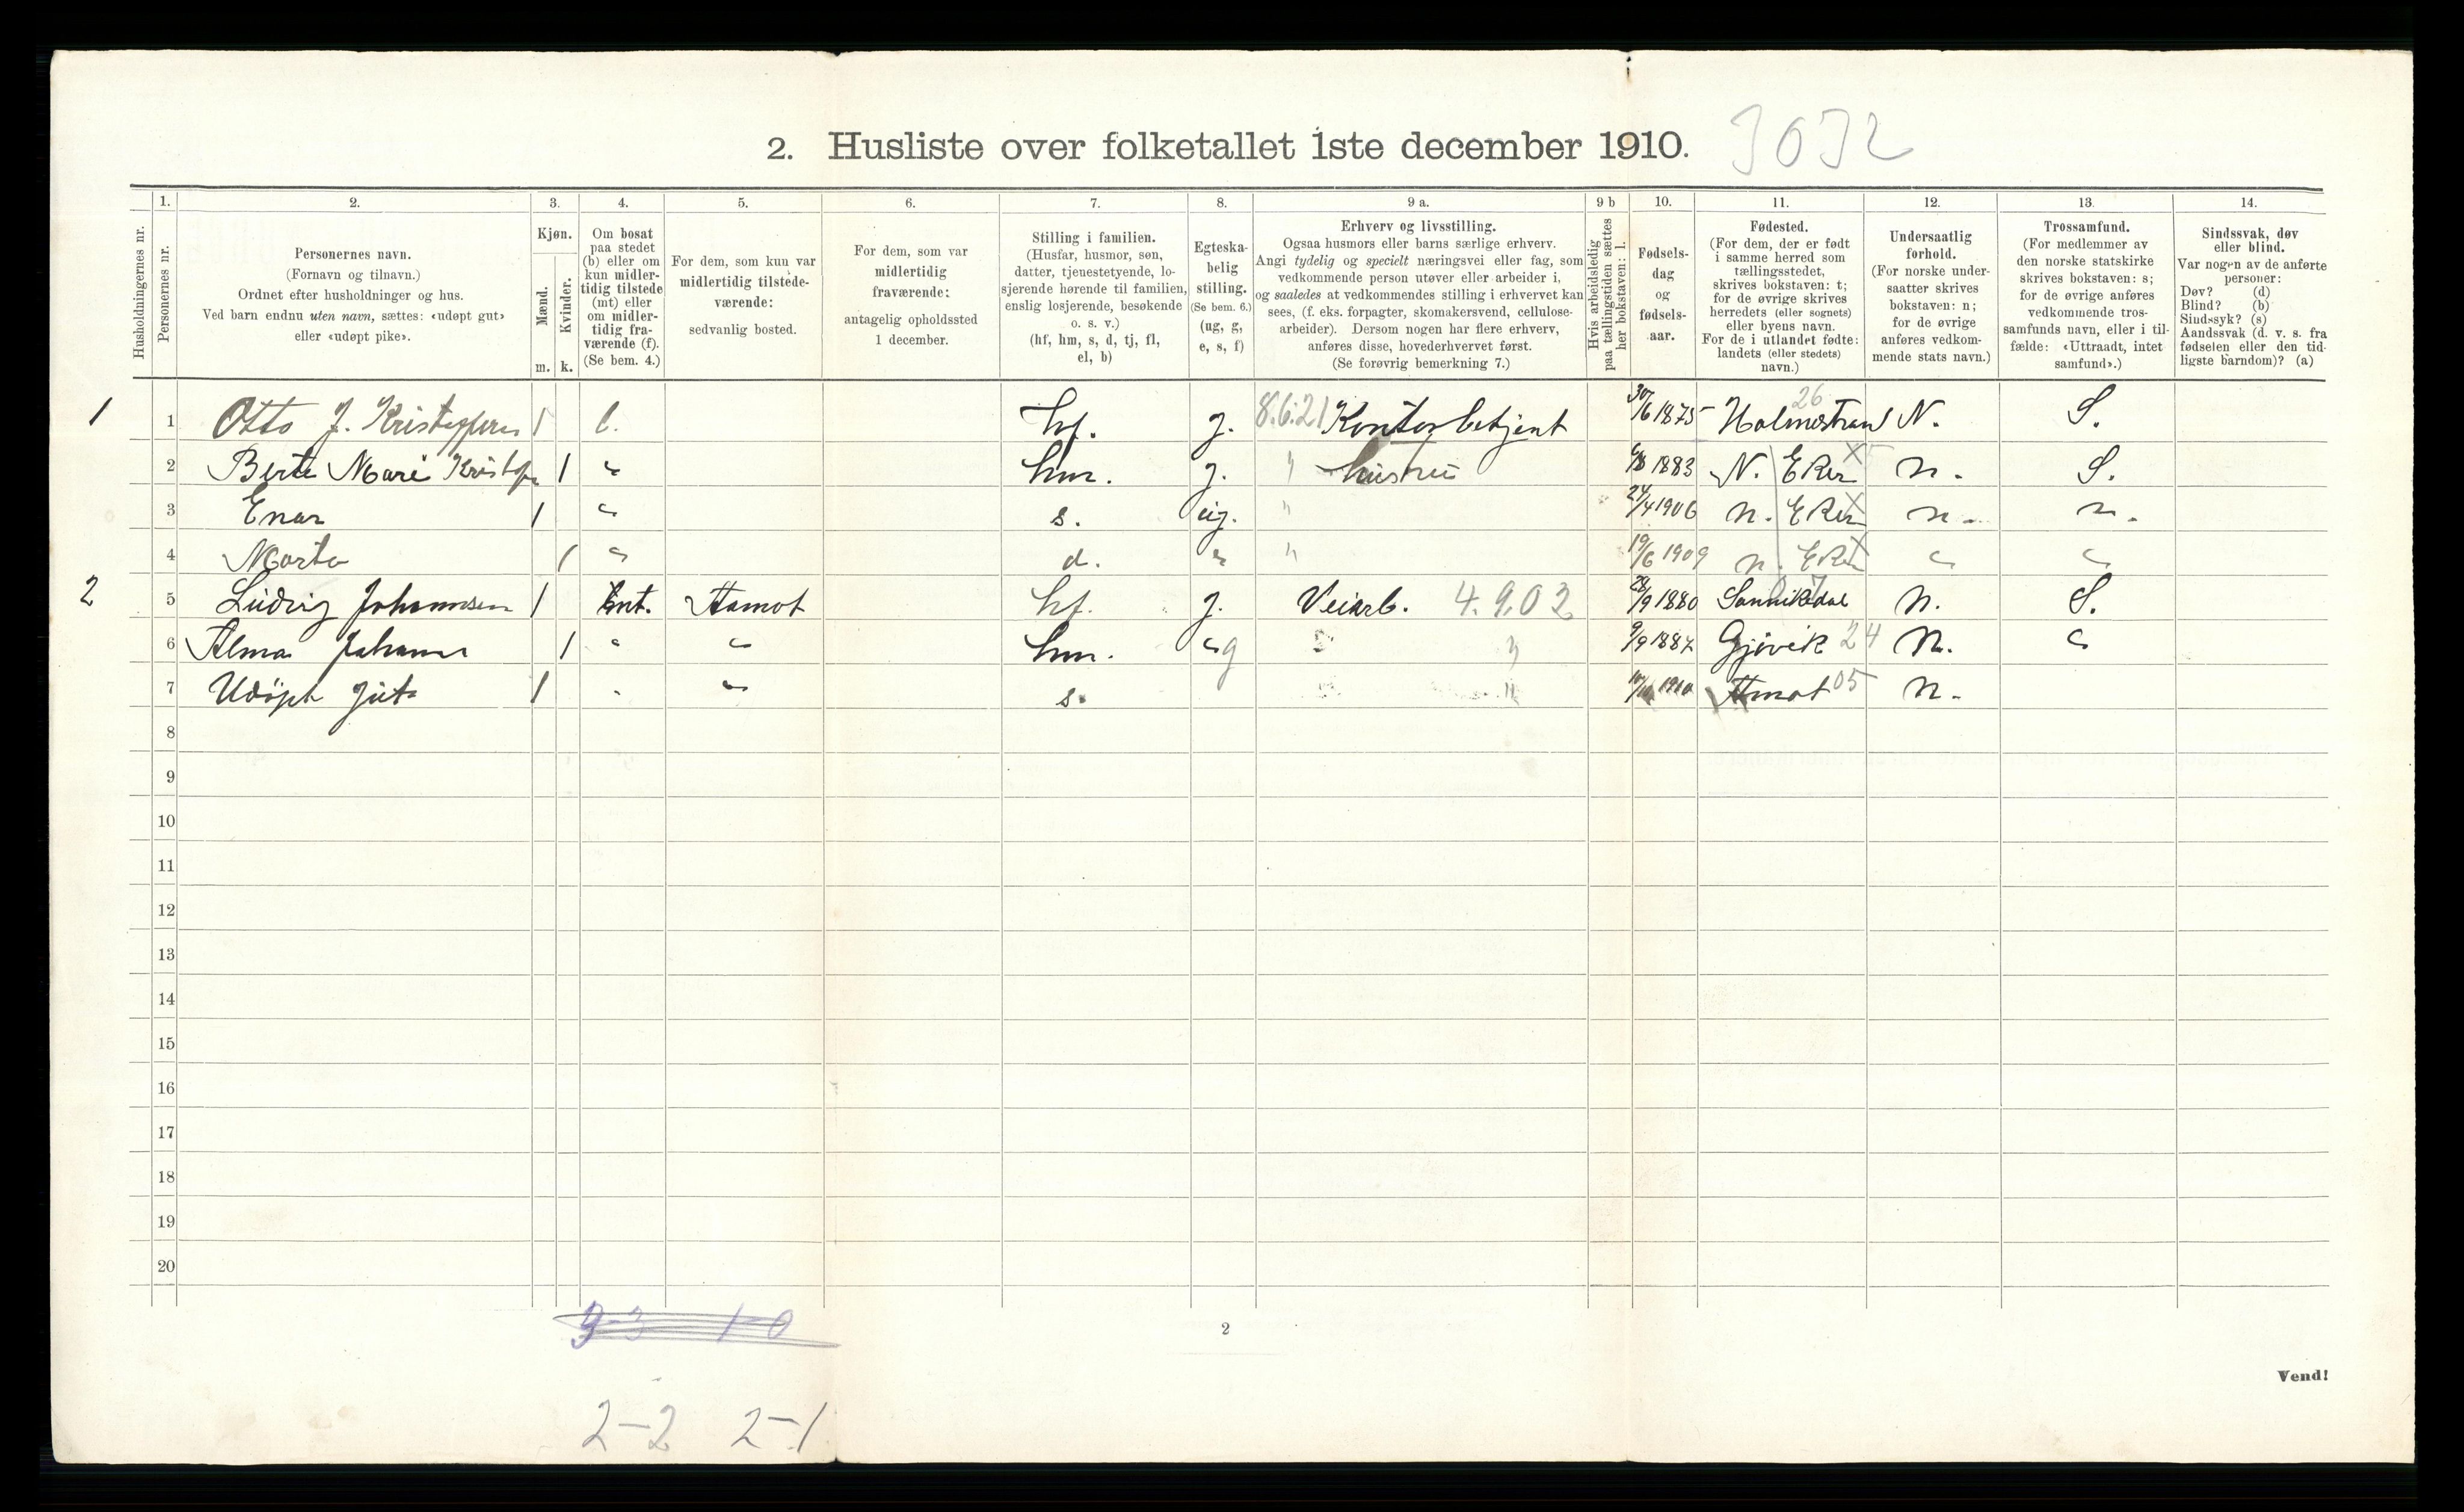 2. Husliste over folketallet 1ste december 1910. 3032
Husholdningernes nr.
1. Personernes nr.
2. Personernes navn. (Fornavn og tilnavn.) Ordnet efter husholdninger og hus. Ved barn endnu uten navn, sættes: «udøpt gut» eller «udøpt pike».
3. Kjøn. Mænd. m. Kvinder. k.
4. Om bosat paa stedet (b) eller om kun midler-tidig tilstede (mt) eller om midler-tidig fra-værende (f). (Se bem. 4.)
5. For dem, som kun var midlertidig tilstede-værende: sedvanlig bosted.
6. For dem, som var midlertidig fraværende: antagelig opholdssted 1 december.
7. Stilling i familien. (Husfar, husmor, søn, datter, tjenestetyende, lo-sjerende hørende til familien, enslig losjerende, besøkende o. s. v.) (hf, hm, s, d, tj, fl, el, b)
8. Egteska-belig stilling. (Se bem. 6.) (ug, g, e, s, f)
9 a. Erhverv og livsstilling. Ogsaa husmors eller barns særlige erhverv. Angi tydelig og specielt næringsvei eller fag, som vedkommende person utøver eller arbeider i, og saaledes at vedkommendes stilling i erhvervet kan sees, (f. eks. forpagter, skomakersvend, cellulose-arbeider). Dersom nogen har flere erhverv, anføres disse, hovederhvervet først. (Se forøvrig bemerkning 7.)
9 b Hvis arbeidsledig paa tællingstiden sættes her bokstaven: l.
10. Fødsels-dag og fødsels-aar.
11. Fødested. (For dem, der er født i samme herred som tællingsstedet, skrives bokstaven: t; for de øvrige skrives herredets (eller sognets) eller byens navn. For de i utlandet fødte: landets (eller stedets) navn.)
12. Undersaatlig forhold. (For norske under-saatter skrives bokstaven: n; for de øvrige anføres vedkom-mende stats navn.)
13. Trossamfund. (For medlemmer av den norske statskirke skrives bokstaven: s; for de øvrige anføres vedkommende tros-samfunds navn, eller i til-fælde: «Uttraadt, intet samfund».)
14. Sindssvak, døv eller blind. Var nogen av de anførte personer: Døv? (d) Blind? (b) Sindssyk? (s) Aandssvak (d. v. s. fra fødselen eller den tid-ligste barndom)? (a)
1 1 Otto J. 1 b. hf. g. 8.6.21 Kontorbetjent 30/6 1875 Holmestrand 26 N. S.
2 Berte Mari 1 " hm. g. " hustru 1883 N. Eker X n. S.
3 Enar 1 " s. ug. " 24/4 1906 n. Eker X n. n.
4 Marta 1 " d. " " 19/6 1909 n. Eker X " "
2 5 Ludvig Johannsen 1 mt. Aamot hf. g. Veiarb. 4.9.03 1880 Sannikedal n. S.
6 Alma 1 " " hm. " g " 9/9 1887 Gjøvik 24 n. "
7 Udøpt Gut 1 " " s. " 1910 Amot 05 n.
8
9
10
11
12
13
14
15
16
17
18
19
20
3-3 1-0
2
Vend!
2-2 2-1